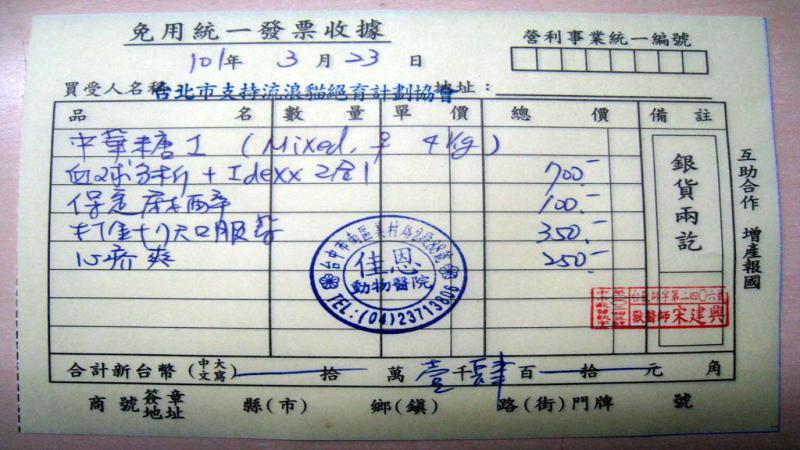 免用統一發票收據
營利事業統一編號
101年 3月 23日
買受人名稱 台北市支持流浪貓絕育計劃協會 地址:
品名 數量 單價 總價 備註
中華糖 1 (Mixed, ♀ 4kg)
血球分析 + Idexx 2合1 700.-
保定麻醉 100.-
打 + 7天口服藥 350.-
心疥爽 250.-
銀貨兩訖
互助合作 增產報國
台中市南區美村路2段88號
佳恩
動物醫院
TEL:(04)23713806
獸醫師 宋建興
合計新台幣(中文大寫) 拾 萬 壹 千 肆 百 拾 元 角
商號簽章地址 縣(市) 鄉(鎮) 路(街)門牌 號